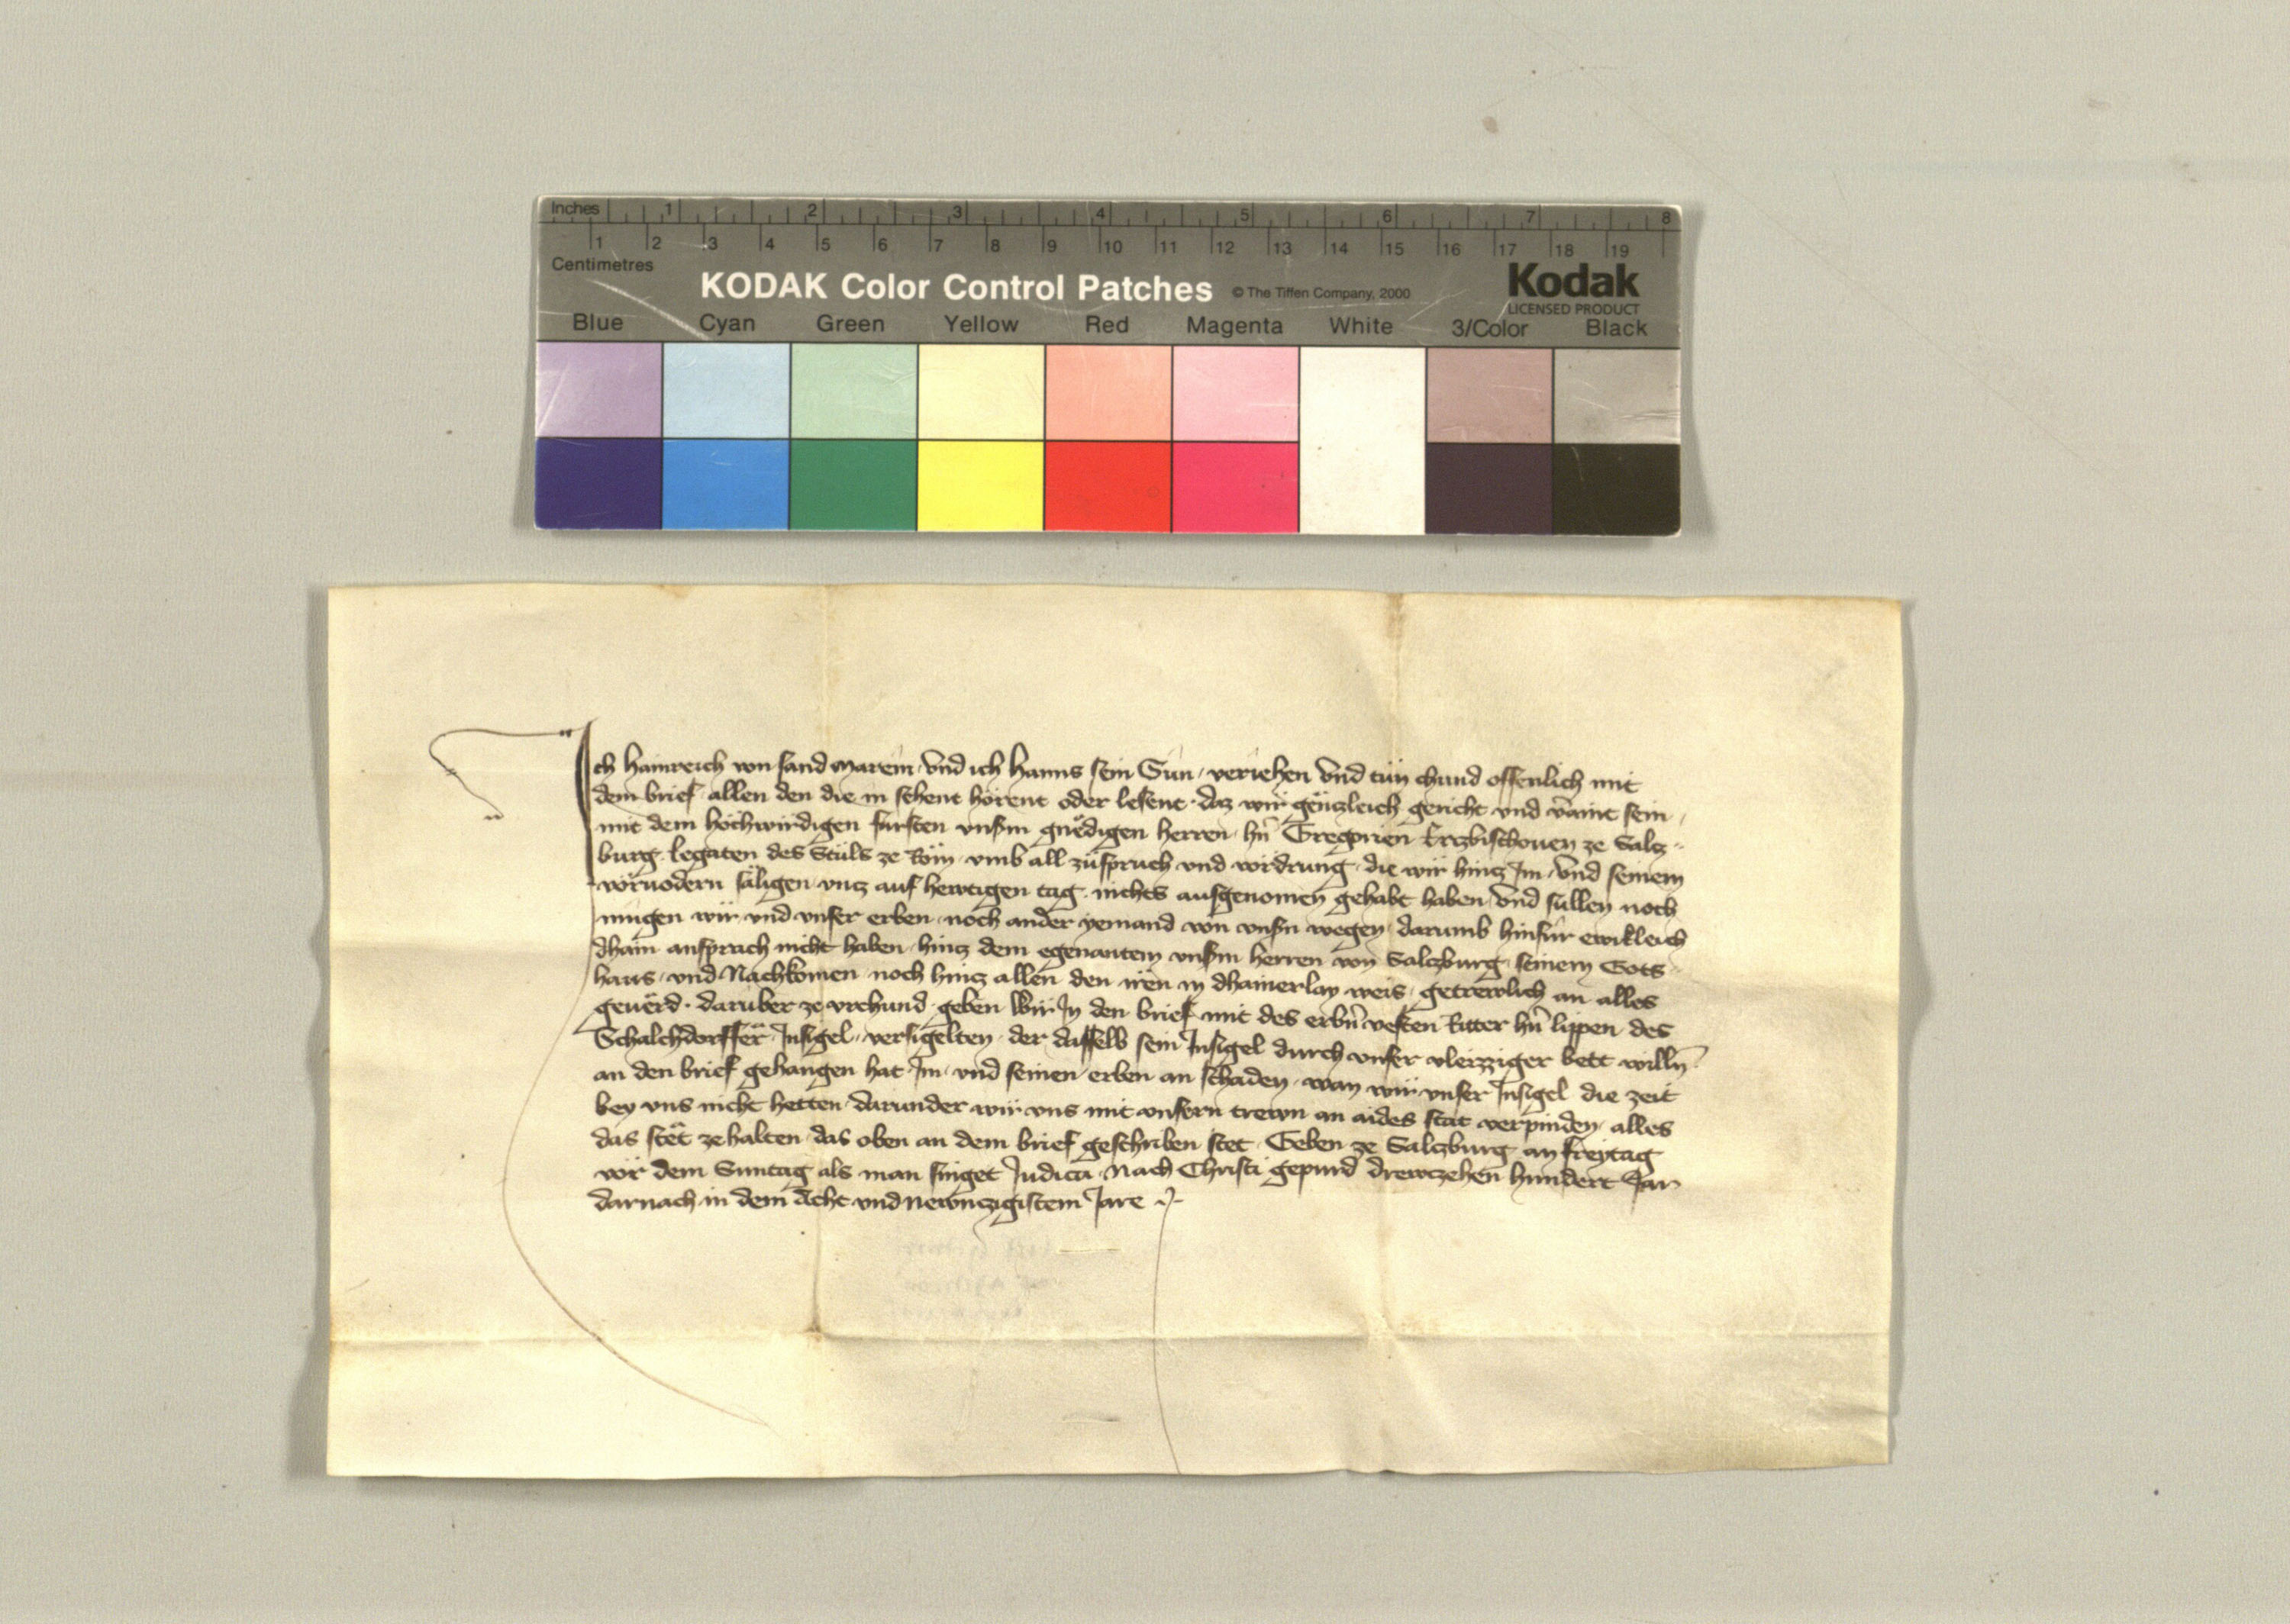 Inches 1 2 3 4 5 6 7 8
1 2 3 4 5 6 7 8 9 10 11 12 13 14 15 16 17 18 19
Centimetres
KODAK Color Control Patches © The Tiffen Company, 2000 Kodak
LICENSED PRODUCT
Blue Cyan Green Yellow Red Magenta White 3/Color Black
Ich Hainreich von sand Marein · vnd ich Hanns sein Sun · veriehen vnd tün chund offenlich mit
dem brief · allen den die in sehent hörent oder lesent · daz wir gënzleich gericht vnd v̄aint sein ·
mit dem höchwirdigen fürsten vnsm̄ gnëdigen herren · hn̄ Gregorien Erczbischouen ze Salcz-
burg · legaten des Stůls ze Röm · vmb all züspruch vnd vördrung · die wir hincz Im · vnd seinem
vöruodern säligen · vncz auf hewtigen tag · nichts ausgenomen gehabt haben · vnd sullen noch
mügen wir · vnd vnser erben · noch ander yemand von vnsn̄ wegen · darumb hinfür ewikleich
dhain ansprach nicht haben · hincz dem egenantem vnsm̄ herren von Salczburg · seinem Gots-
haus · vnd Nachkomen · noch hincz allen den iren in dhainerlay weis · getrewlich an alles
geuërd · darüber ze vrchund · geben Wir In den brief mit des erbn̄ vesten Ritter hn̄ lippen des
Schalchdorffër · Insigel · versigelten · der dasselb sein Insigel durch vnser vleizziger bett willn̄
an den brief gehangen hat · Im · vnd seinen erben an schaden · wan wir vnser Insigel die zeit
bey vns nicht hetten · darunder wir vns mit vnsern trewn an aides stat verpinden · alles
das stët ze halten · das oben an dem brief geschriben stet · Geben ze Salczburg · an freytag
vör dem Suntag als man singet Judica · Nach Christi gepurd drewczehen hundert Jar
darnach in dem Acht vnd Newnczigistem Jare